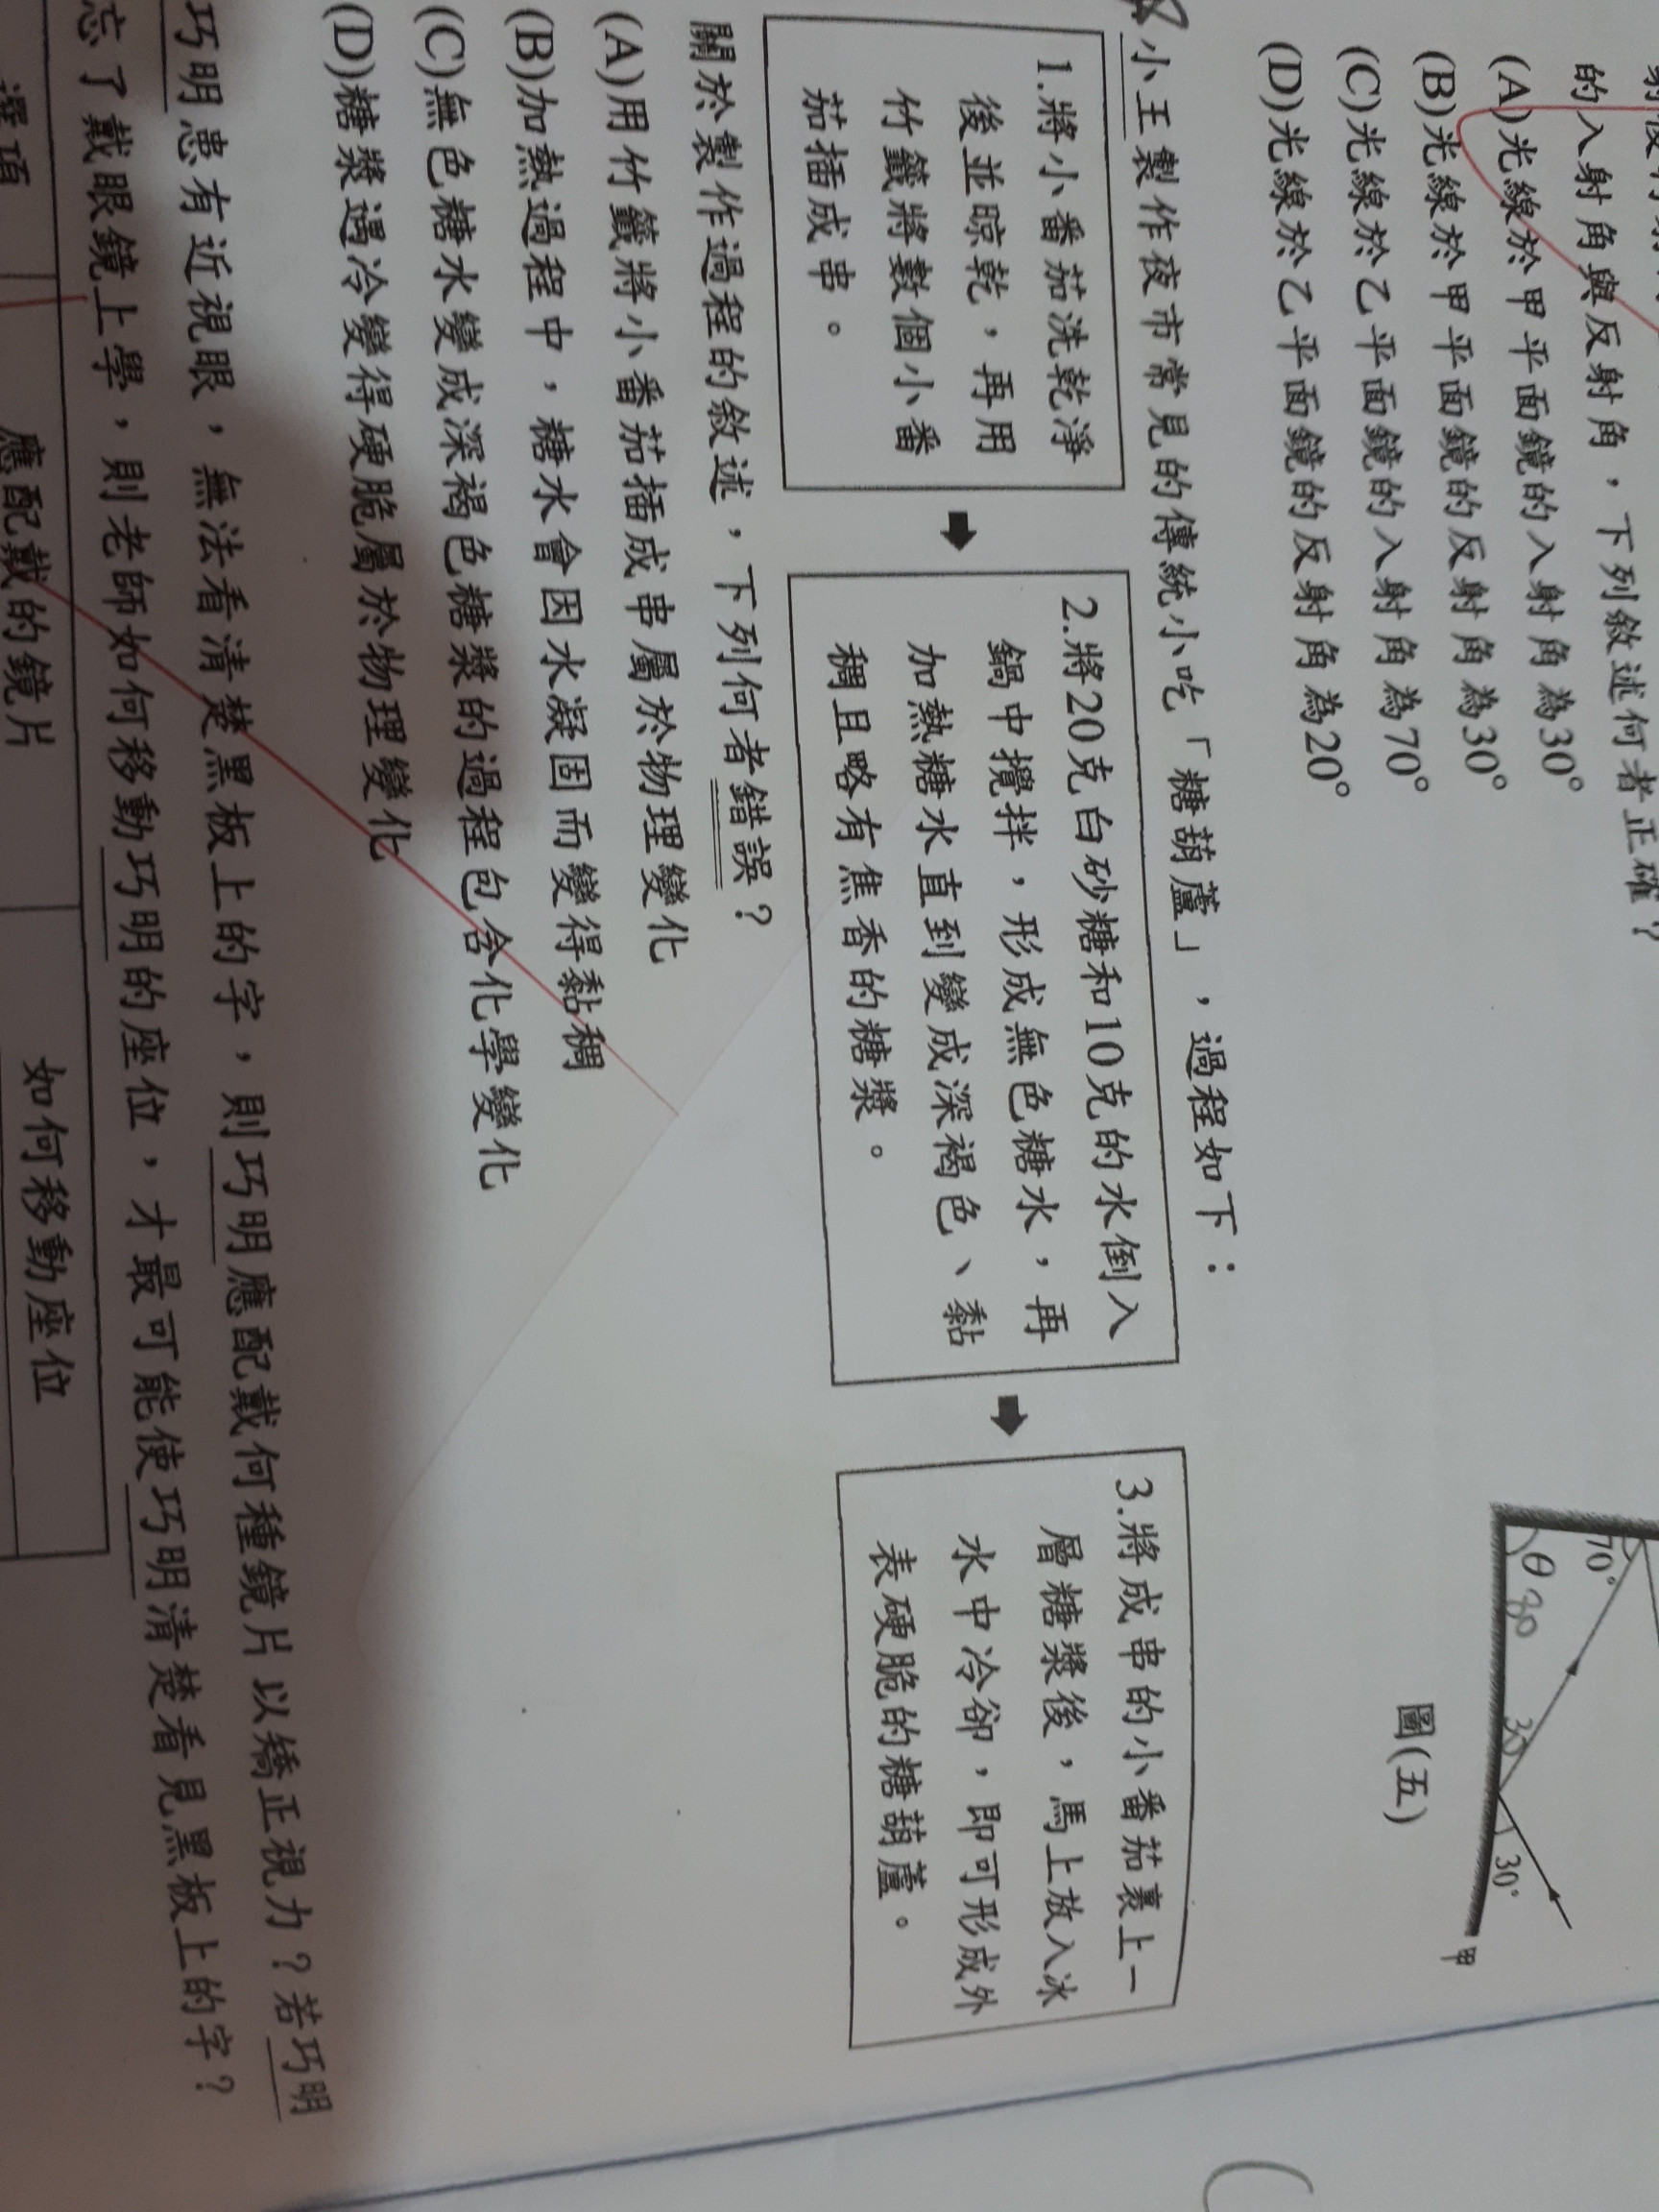 的入射角與反射角，下列敘述何者正確？
(A)光線於甲平面鏡的入射角為30°
(B)光線於甲平面鏡的反射角為30°
(C)光線於乙平面鏡的入射角為70°
(D)光線於乙平面鏡的反射角為20°
70°
θ 80
30
30°
甲
圖(五)
小王製作夜市常見的傳統小吃「糖葫蘆」，過程如下：
1.將小番茄洗乾淨
後並晾乾，再用
竹籤將數個小番
茄插成串。
2.將20克白砂糖和10克的水倒入
鍋中攪拌，形成無色糖水，再
加熱糖水直到變成深褐色、黏
稠且略有焦香的糖漿。
3.將成串的小番茄裹上一
層糖漿後，馬上放入冰
水中冷卻，即可形成外
表硬脆的糖葫蘆。
關於製作過程的敘述，下列何者錯誤？
(A)用竹籤將小番茄插成串屬於物理變化
(B)加熱過程中，糖水會因水凝固而變得黏稠
(C)無色糖水變成深褐色糖漿的過程包含化學變化
(D)糖漿遇冷變得硬脆屬於物理變化
巧明患有近視眼，無法看清楚黑板上的字，則巧明應配戴何種鏡片以矯正視力？若巧明
忘了戴眼鏡上學，則老師如何移動巧明的座位，才最可能使巧明清楚看見黑板上的字？
選項 應配戴的鏡片 如何移動座位